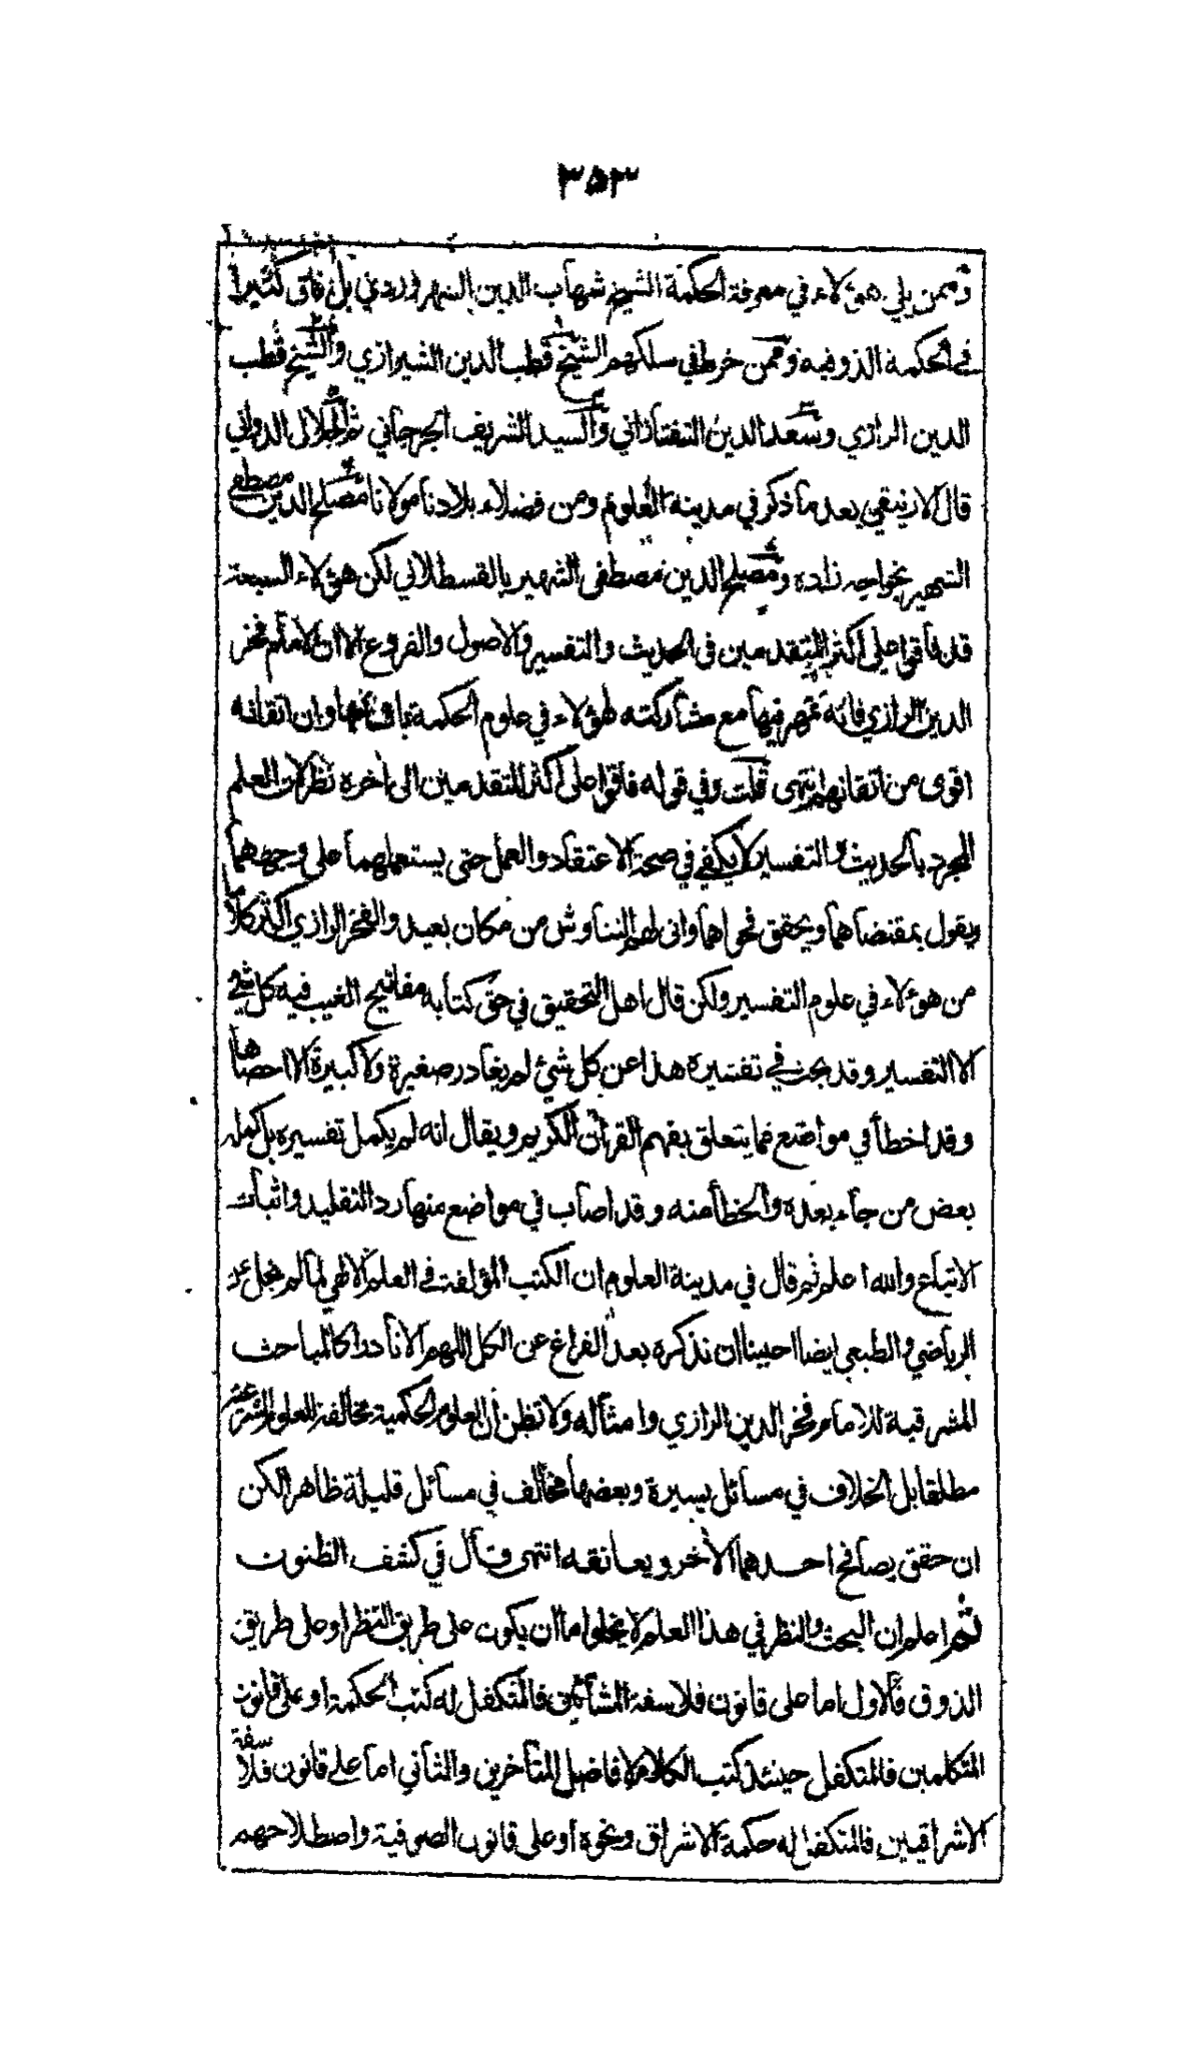 ٣٥٣
وممن يلي هؤلاء في معرفة الحكمة الشيخ شهاب الدين السهروردي بل فاق كثيرا
في الحكمة الذوقية وممن خرط في سلكهم الشيخ قطب الدين الشيرازي والشيخ قطب
الدين الرازي وسعد الدين التفتازاني والسيد الشريف الجرجاني ثم الجلال الدواني
قال الارنيقي بعد ما ذكر في مدينة العلوم ومن فضلاء بلادنا مولانا مصلح الدين مصطفى
الشهير بخواجه زاده ومصلح الدين مصطفى الشهير بالقسطلاني لكن هؤلاء السبعة
قد فاقوا على اكثر المتقدمين في الحديث والتفسير والاصول والفروع الا ان الامام فخر
الدين الرازي فانه تمهر فيها مع مشاركته لهؤلاء في علوم الحكمة باقسامها وان اتقانه
اقوى من اتقانهم انتهى قلت وفي قوله فاقوا على اكثر المتقدمين الى اخره نظر لان العلم
المجرد بالحديث والتفسير لا يكفي في صحة الاعتقاد والعمل حتى يستعملهما على وجههما
ويقول بمقتضاهما ويحقق فحواهما وانى لهم التناوش من مكان بعيد والفخر الرازي اكثر كلاما
من هؤلاء في علوم التفسير ولكن قال اهل التحقيق في حق كتابه مفاتيح الغيب فيه كل شيء
الا التفسير وقد بحث في تفسيره هذا عن كل شيء لم يغادر صغيرة ولا كبيرة الا احصاها
وقد اخطأ في مواضع مما يتعلق بفهم القرآن الكريم ويقال انه لم يكمل تفسيره بل كمله
بعض من جاء بعده والخطأ منه وقد اصاب في مواضع منها رد التقليد واثبات
الاتباع والله اعلم ثم قال في مدينة العلوم ان الكتب المؤلفة في العلم الالهي لما لم يخل عن
الرياضي والطبعي ايضا احببنا ان نذكره بعد الفراغ عن الكل اللهم الا نادرا كالمباحث
المشرقية للامام فخر الدين الرازي وامثاله ولا تظن ان العلوم الحكمية مخالفة للعلوم الشرعية
مطلقا بل الخلاف في مسائل يسيرة وبعضها مخالف في مسائل قليلة ظاهرا لكن
ان حقق يصافح احدهما الآخر ويعانقه انتهى وقال في كشف الظنون
ثم اعلم ان البحث والنظر في هذا العلم لا يخلوا ما ان يكون على طريق النظر او على طريق
الذوق فالاول اما على قانون فلاسفة المشائين فالمتكفل له كتب الحكمة او على قانون
المتكلمين فالمتكفل حينئذ كتب الكلام لافاضل المتأخرين والثاني اما على قانون فلاسفة
الاشراقيين فالمتكفل له حكمة الاشراق ونحوه او على قانون الصوفية واصطلاحهم